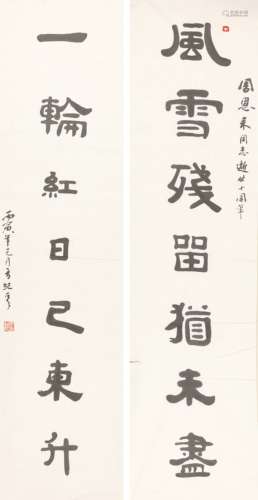 周恩来同志逝世十周年
風雪殘留猶未盡
一輪紅日已東升
丙寅年元月